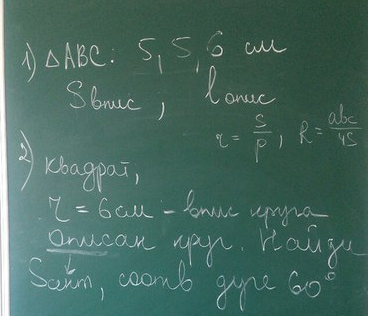 1) △ABC: 5, 5, 6 см
Sвпис, lопис
r = S/p, R = abc/4S
2) Квадрат,
r = 6 см – впис круга
Описан круг. Найди
Sсект, соотв дуге 60°